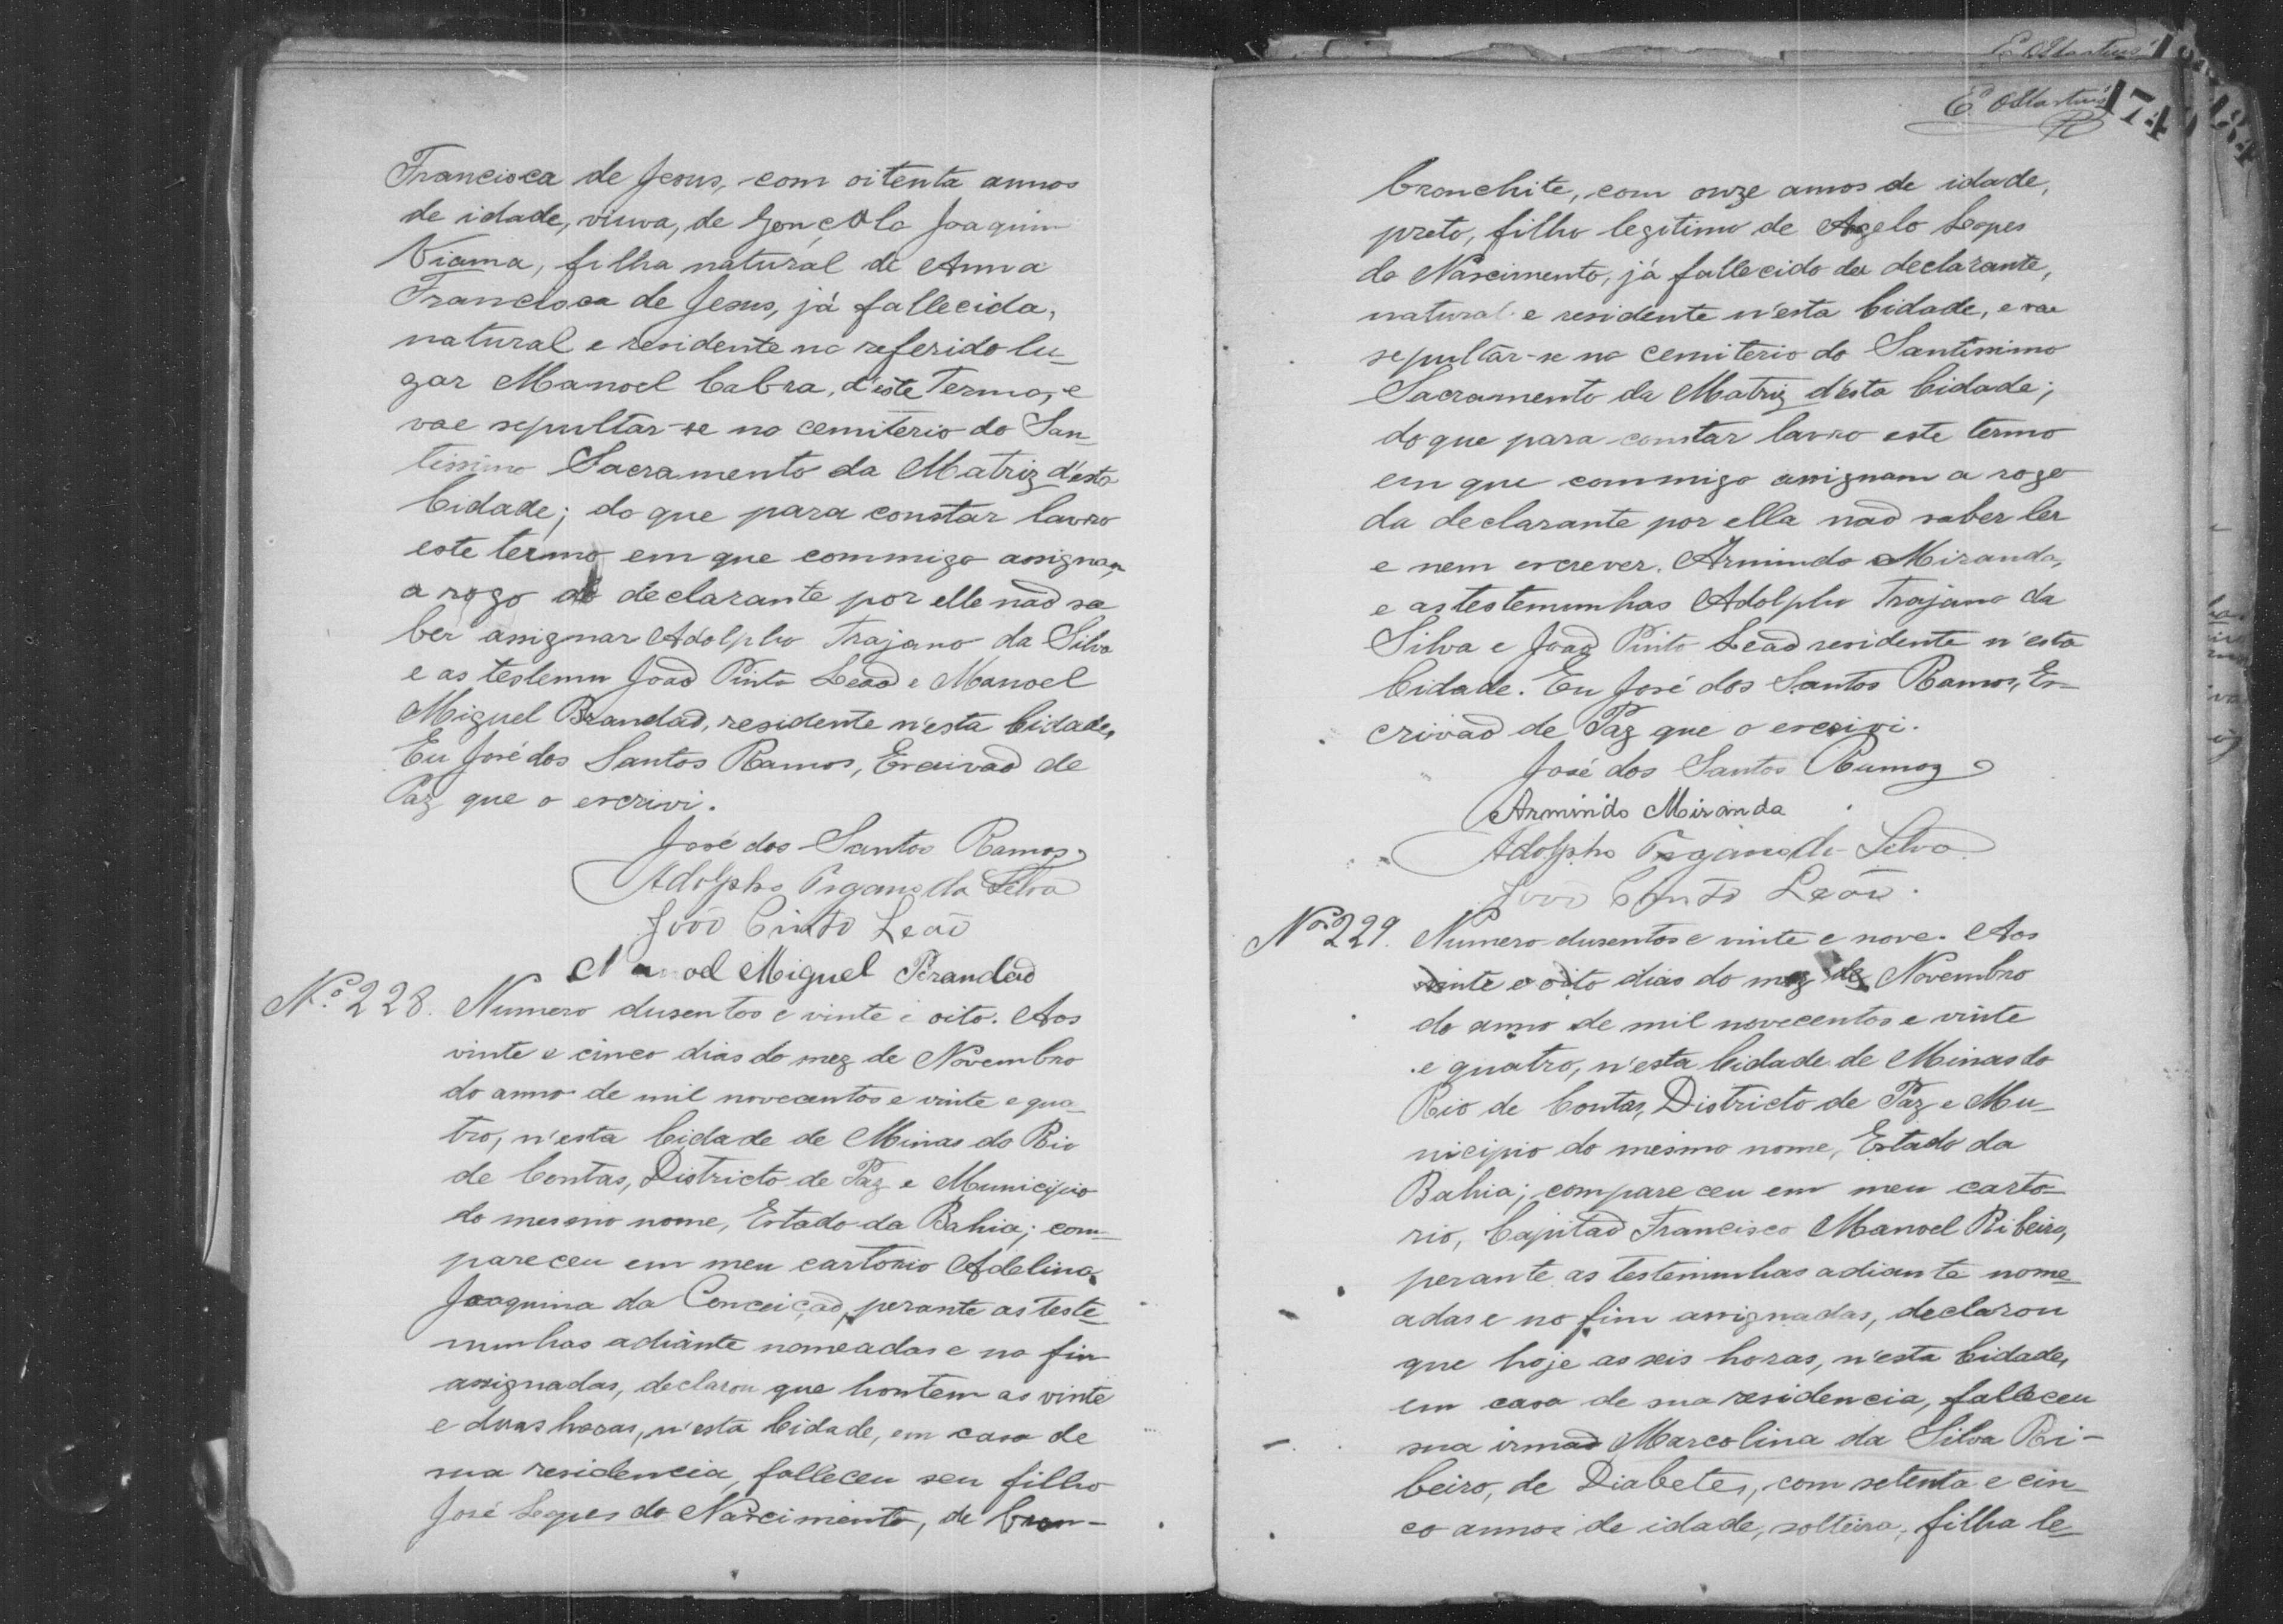 Francisca de Jesus, com oitenta annos
de idade, viuva, de Gonçalo Joaquim
Vianna, filha natural de Anna
Francisca de Jesus, já fallecida,
natural e residente no referido lu_
gar Manoel Cabra, d'este Termo, e
vae sepultar-se no cemiterio do San_
tissimo Sacramento da Matriz d'esta
Cidade; do que para constar lavro
este termo em que commigo assignam
a rogo do declarante por elle não sa
ber assignar Adolpho Trajano da Silva
e as testemu João Pinto Leão e Manoel
Miguel Brandão, residente n'esta Cidade,
Eu José dos Santos Ramos, Escrivão de
Paz que o escrivi.
José dos Santos Ramos
Adolpho Trajano da Silva
João Pinto Leão
Manoel Miguel Brandão
Nº 228. Numero dusentos e vinte e oito. Aos
vinte e cinco dias do mez de Novembro
do anno de mil novecentos e vinte e qua_
tro, n'esta Cidade de Minas do Rio
de Contas, Districto de Paz e Municipio
do mesmo nome, Estado da Bahia; com_
pareceu em meu cartorio Adelina
Joaquina da Conceição, perante as teste_
munhas adiante nomeadas e no fim
assignadas, declarou que hontem as vinte
e duas horas, n'esta Cidade, em casa de
sua residencia, falleceu seu filho
José Lopes do Nascimento, de bron-
E. Martins
E. Martins
174
184
bronchite, com onze annos de idade,
preto, filho legitimo de Agelo Lopes
do Nascimento, já fallecido da declarante,
natural e residente n'esta Cidade, e vae
sepultar-se no cemiterio do Santissimo
Sacramento da Matriz d'esta Cidade;
do que para constar lavro este termo
em que commigo assignam a rogo
da declarante por ella não saber ler
e nem escrever. Armindo Miranda,
e as testemunhas Adolpho Trajano da
Silva e João Pinto Leão residente n'esta
Cidade. Eu José dos Santos Ramos, Es-
crivão de Paz que o escrivi.
José dos Santos Ramos
Armindo Miranda
Adolpho Trajano da Silva
João Pinto Leão.
Nº 229. Numero dusentos e vinte e nove. Aos
vinte e oito dias do mez de Novembro
do anno de mil novecentos e vinte
e quatro, n'esta Cidade de Minas do
Rio de Contas, Districto de Paz e Mu_
nicipio do mesmo nome, Estado da
Bahia; compareceu em meu carto-
rio, Capitão Francisco Manoel Ribeiro,
perante as testemunhas adiante nome_
adas e no fim assignadas, declarou
que hoje as seis horas, n'esta Cidade,
em casa de sua residencia, falleceu
sua irmã Marcolina da Silva Ri-
beiro, de Diabetes, com setenta e cin_
co annos de idade, solteira, filha le_